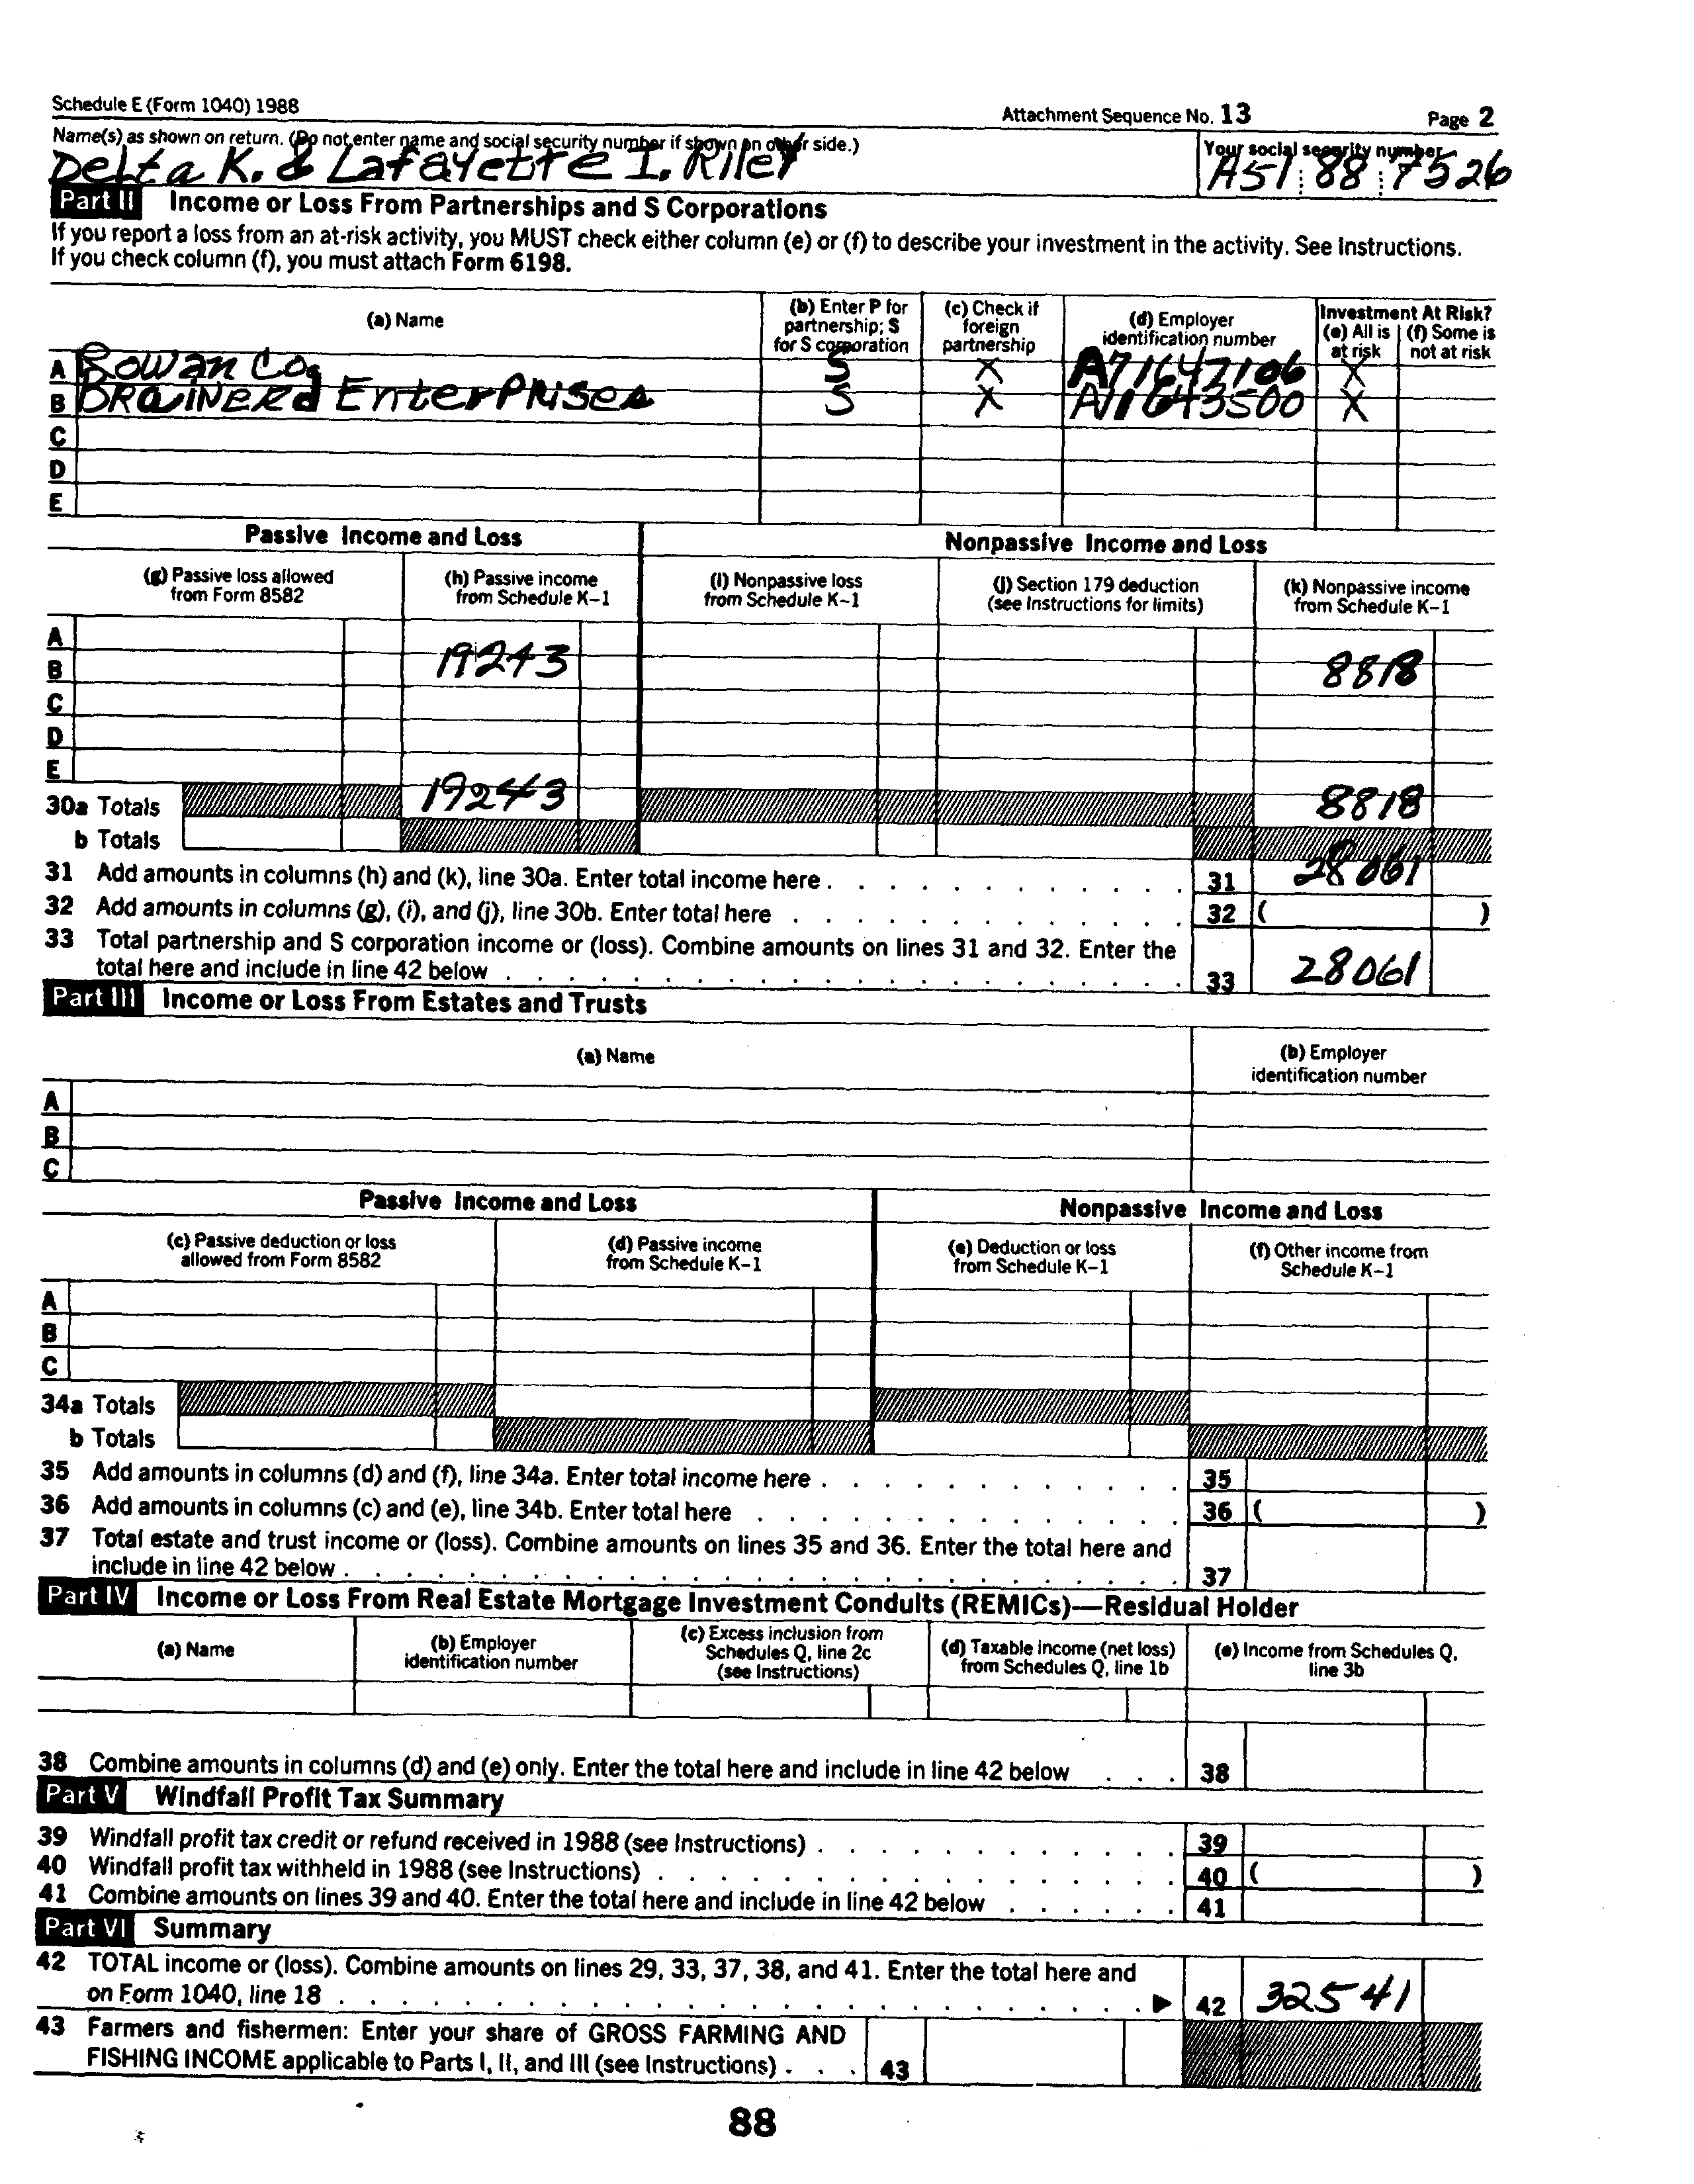 Schedule E (Form 1040) 1988 Attachment Sequence No. 13 Page 2
Name(s) as shown on return. (Do not enter name and social security number if shown on other side.) Your social security number
Delta K. & Lafayette I. Riley A51 88 7526
Part II Income or Loss From Partnerships and S Corporations
If you report a loss from an at-risk activity, you MUST check either column (e) or (f) to describe your investment in the activity. See Instructions.
If you check column (f), you must attach Form 6198.
(a) Name (b) Enter P for partnership; S for S corporation (c) Check if foreign partnership (d) Employer identification number Investment At Risk? (e) All is at risk (f) Some is not at risk
A Rowan Co. S X A71647106 X
B BRaiNERd EnterPRises S X A11643500 X
C
D
E
Passive Income and Loss Nonpassive Income and Loss
(g) Passive loss allowed from Form 8582 (h) Passive income from Schedule K-1 (i) Nonpassive loss from Schedule K-1 (j) Section 179 deduction (see Instructions for limits) (k) Nonpassive income from Schedule K-1
A
B 19243 8818
C
D
E
30a Totals 19243 8818
b Totals
31 Add amounts in columns (h) and (k), line 30a. Enter total income here . . . 31 28061
32 Add amounts in columns (g), (i), and (j), line 30b. Enter total here . . . 32 ( )
33 Total partnership and S corporation income or (loss). Combine amounts on lines 31 and 32. Enter the
total here and include in line 42 below . . . 33 28061
Part III Income or Loss From Estates and Trusts
(a) Name (b) Employer identification number
A
B
C
Passive Income and Loss Nonpassive Income and Loss
(c) Passive deduction or loss allowed from Form 8582 (d) Passive income from Schedule K-1 (e) Deduction or loss from Schedule K-1 (f) Other income from Schedule K-1
A
B
C
34a Totals
b Totals
35 Add amounts in columns (d) and (f), line 34a. Enter total income here . . . 35
36 Add amounts in columns (c) and (e), line 34b. Enter total here . . . 36 ( )
37 Total estate and trust income or (loss). Combine amounts on lines 35 and 36. Enter the total here and
include in line 42 below . . . 37
Part IV Income or Loss From Real Estate Mortgage Investment Conduits (REMICs)—Residual Holder
(a) Name (b) Employer identification number (c) Excess inclusion from Schedules Q, line 2c (see Instructions) (d) Taxable income (net loss) from Schedules Q, line 1b (e) Income from Schedules Q, line 3b
38 Combine amounts in columns (d) and (e) only. Enter the total here and include in line 42 below . . . 38
Part V Windfall Profit Tax Summary
39 Windfall profit tax credit or refund received in 1988 (see Instructions) . . . 39
40 Windfall profit tax withheld in 1988 (see Instructions) . . . 40 ( )
41 Combine amounts on lines 39 and 40. Enter the total here and include in line 42 below . . . 41
Part VI Summary
42 TOTAL income or (loss). Combine amounts on lines 29, 33, 37, 38, and 41. Enter the total here and
on Form 1040, line 18 . . . ▶ 42 32541
43 Farmers and fishermen: Enter your share of GROSS FARMING AND
FISHING INCOME applicable to Parts I, II, and III (see Instructions) . . . 43
88